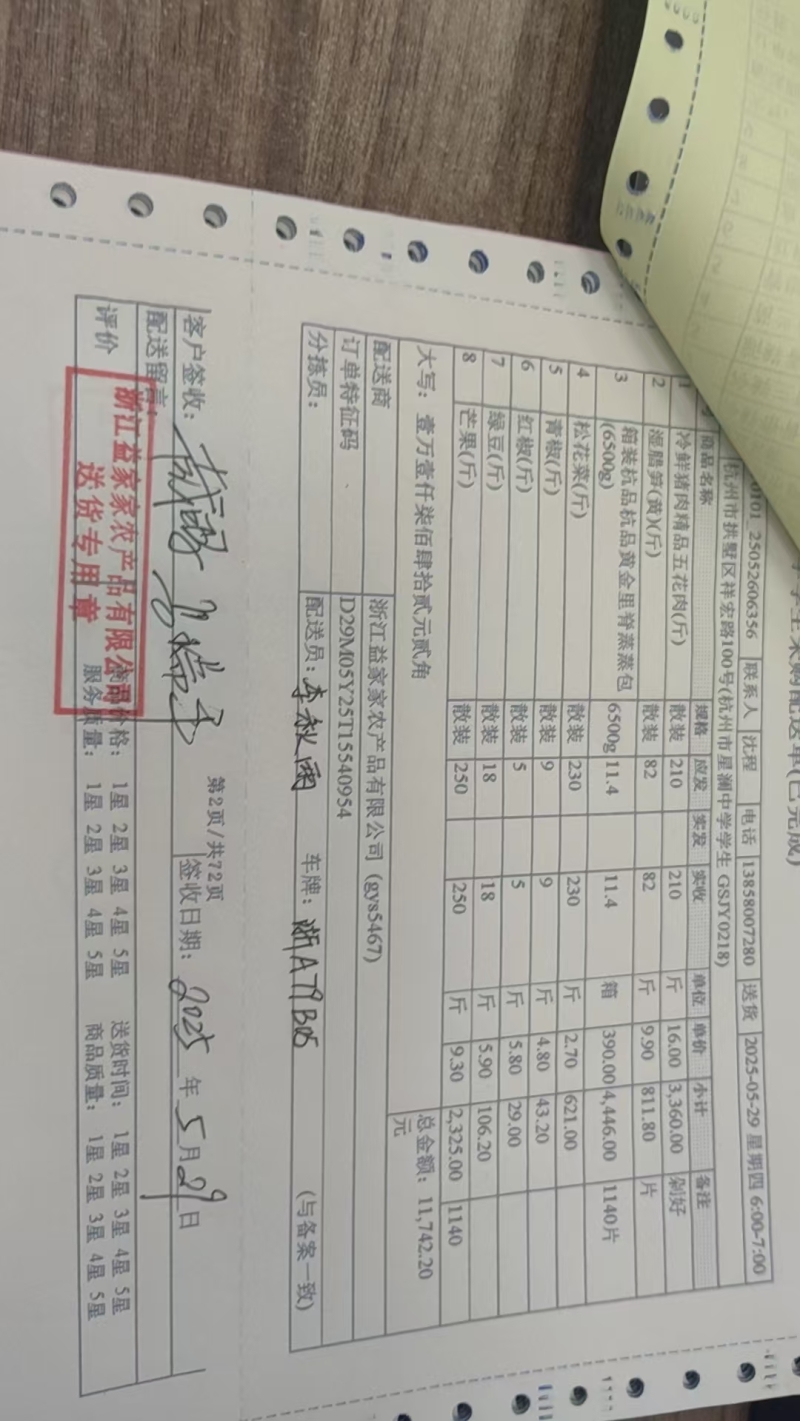 学生采购配送单(已完成)
0101_25052606356 联系人 沈程 电话 13858007280 送货 2025-05-29 星期四 6:00-7:00
杭州市拱墅区祥宏路100号(杭州市星澜中学学生 GSJY0218)
商品名称 规格 应发 实发 实收 单位 单价 小计 备注
1 冷鲜猪肉精品五花肉(斤) 散装 210 210 斤 16.00 3,360.00 剁好
2 湿腊笋(黄)(斤) 散装 82 82 斤 9.90 811.80 片
3 箱装杭品杭品黄金里脊蒸蒸包(6500g) 6500g 11.4 11.4 箱 390.00 4,446.00 1140片
4 松花菜(斤) 散装 230 230 斤 2.70 621.00
5 青椒(斤) 散装 9 9 斤 4.80 43.20
6 红椒(斤) 散装 5 5 斤 5.80 29.00
7 绿豆(斤) 散装 18 18 斤 5.90 106.20
8 芒果(斤) 散装 250 250 斤 9.30 2,325.00 1140
大写: 壹万壹仟柒佰肆拾贰元贰角 总金额: 11,742.20元
配送商 浙江益家家农产品有限公司 (gys5467)
订单特征码 D29M05Y25T15540954
分拣员: 配送员: 李秋雨 车牌: 浙A (与备案一致)
第2页/共72页
客户签收: 签收日期: 2025 年 5 月 29 日
配送留言:
评价 商品价格: 1星 2星 3星 4星 5星 送货时间: 1星 2星 3星 4星 5星
服务质量: 1星 2星 3星 4星 5星 商品质量: 1星 2星 3星 4星 5星
浙江益家家农产品有限公司
送货专用章